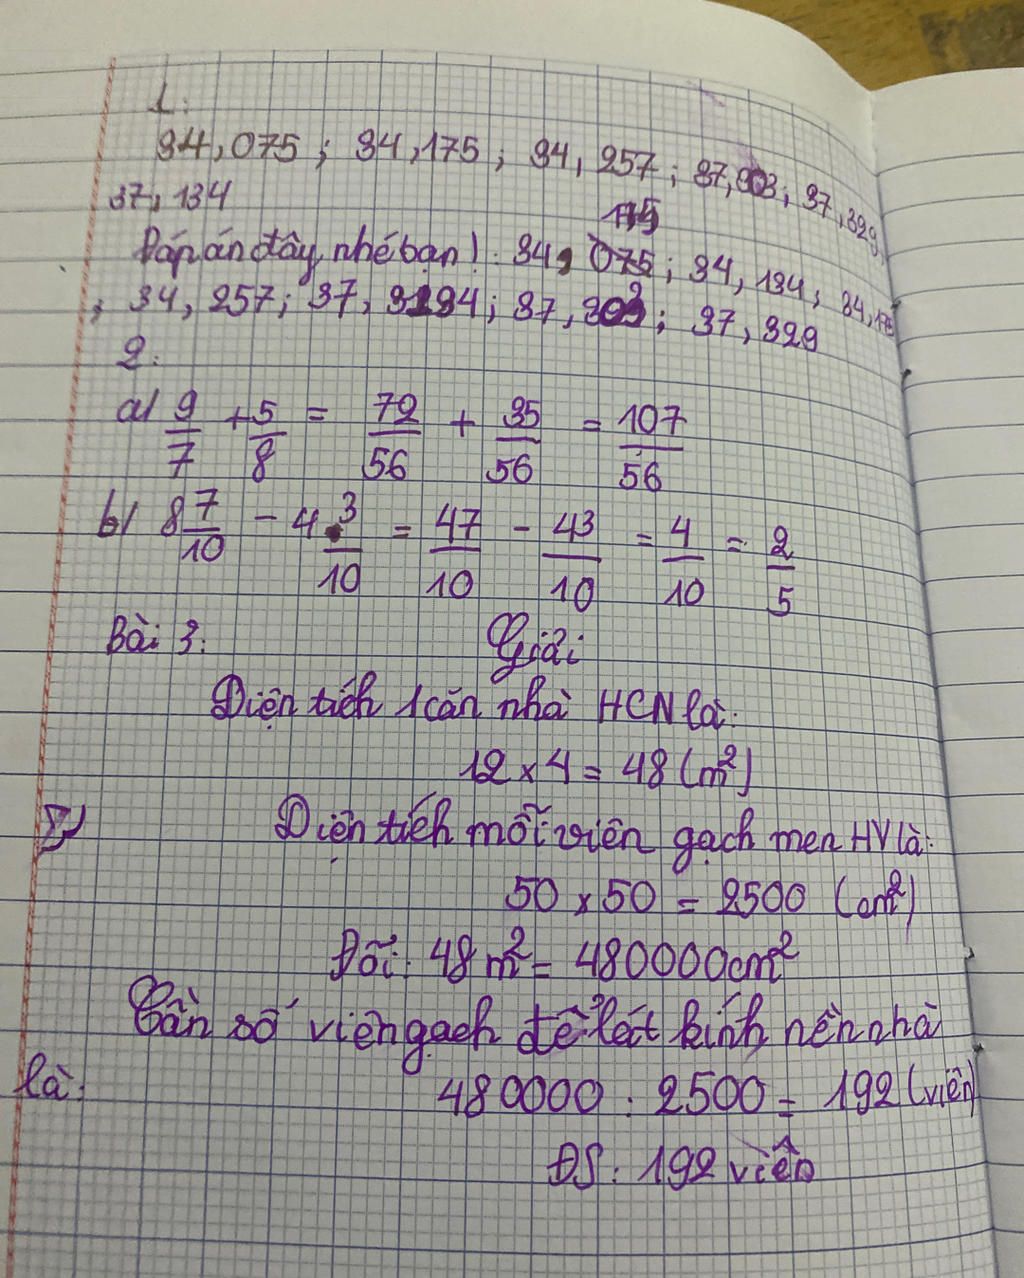 1.
34,075 ; 34,175 ; 34,257 ; 37,303 ; 37,329
37,134
175
Đáp án đây nhé bạn! : 34, 075 ; 34, 134 ; 34,175
; 34, 257 ; 37, ; 37, ; 37, 329
2.
a/ 9/7 + 5/8 = 72/56 + 35/56 = 107/56
b/ 8 7/10 - 4 3/10 = 47/10 - 43/10 = 4/10 = 2/5
Bài 3: Giải
Diện tích 1 căn nhà HCN là:
12 x 4 = 48 (m²)
Diện tích mỗi viên gạch men HV là:
50 x 50 = 2500 (cm²)
Đổi: 48 m² = 480000cm²
Cần số viên gạch để lát kính nền nhà
là: 480000 : 2500 = 192 (viên)
ĐS: 192 viên